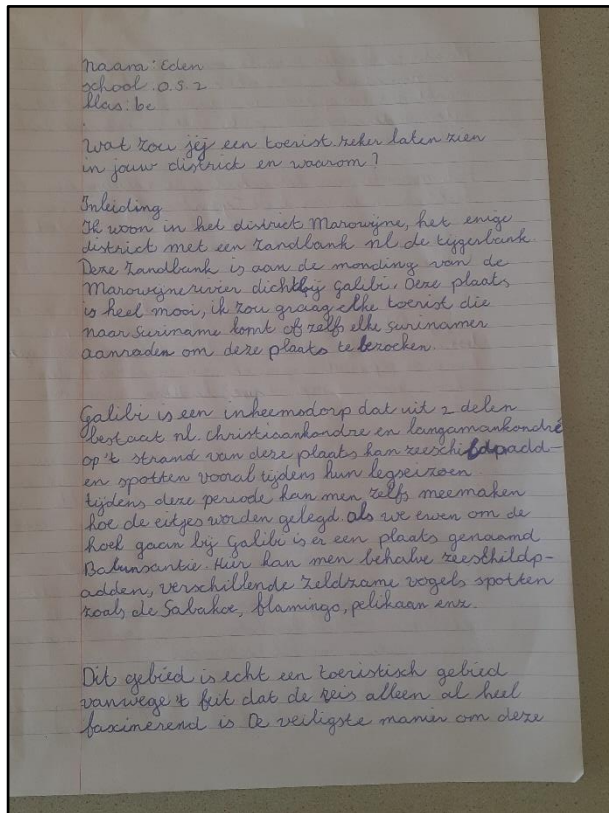 Naam: Eden
school: O.S 2
klas: 6c
Wat zou jij een toerist zeker laten zien
in jouw district en waarom?
Inleiding
Ik woon in het district Marowijne, het enige
district met een zandbank nl de tijgerbank.
Deze zandbank is aan de monding van de
Marowijnerivier dichtbij Galibi. Deze plaats
is heel mooi, ik zou graag elke toerist die
naar Suriname komt of zelfs elke surinamer
aanraden om deze plaats te bezoeken.
Galibi is een inheemsdorp dat uit 2 delen
bestaat nl. christiaankondre en langamankondré
op 't strand van deze plaats kan zeeschildpadd-
en spotten vooral tijdens hun legseizoen
tijdens deze periode kan men zelfs meemaken
hoe de eitjes worden gelegd. als we even om de
hoek gaan bij Galibi is er een plaats genaamd
Hier kan men behalve zeeschildp-
adden, verschillende zeldzame vogels spotten
zoals de Sabakoe, flamingo, pelikaan enz.
Dit gebied is echt een toeristisch gebied
vanwege 't feit dat de reis alleen al heel
faxinerend is De veiligste manier om deze